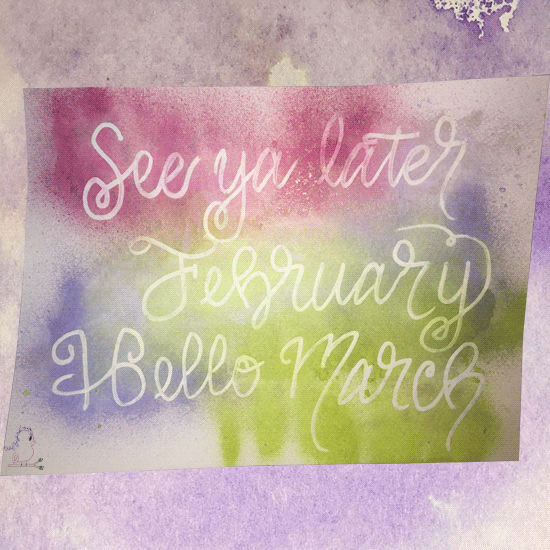 See ya later
February
Hello March